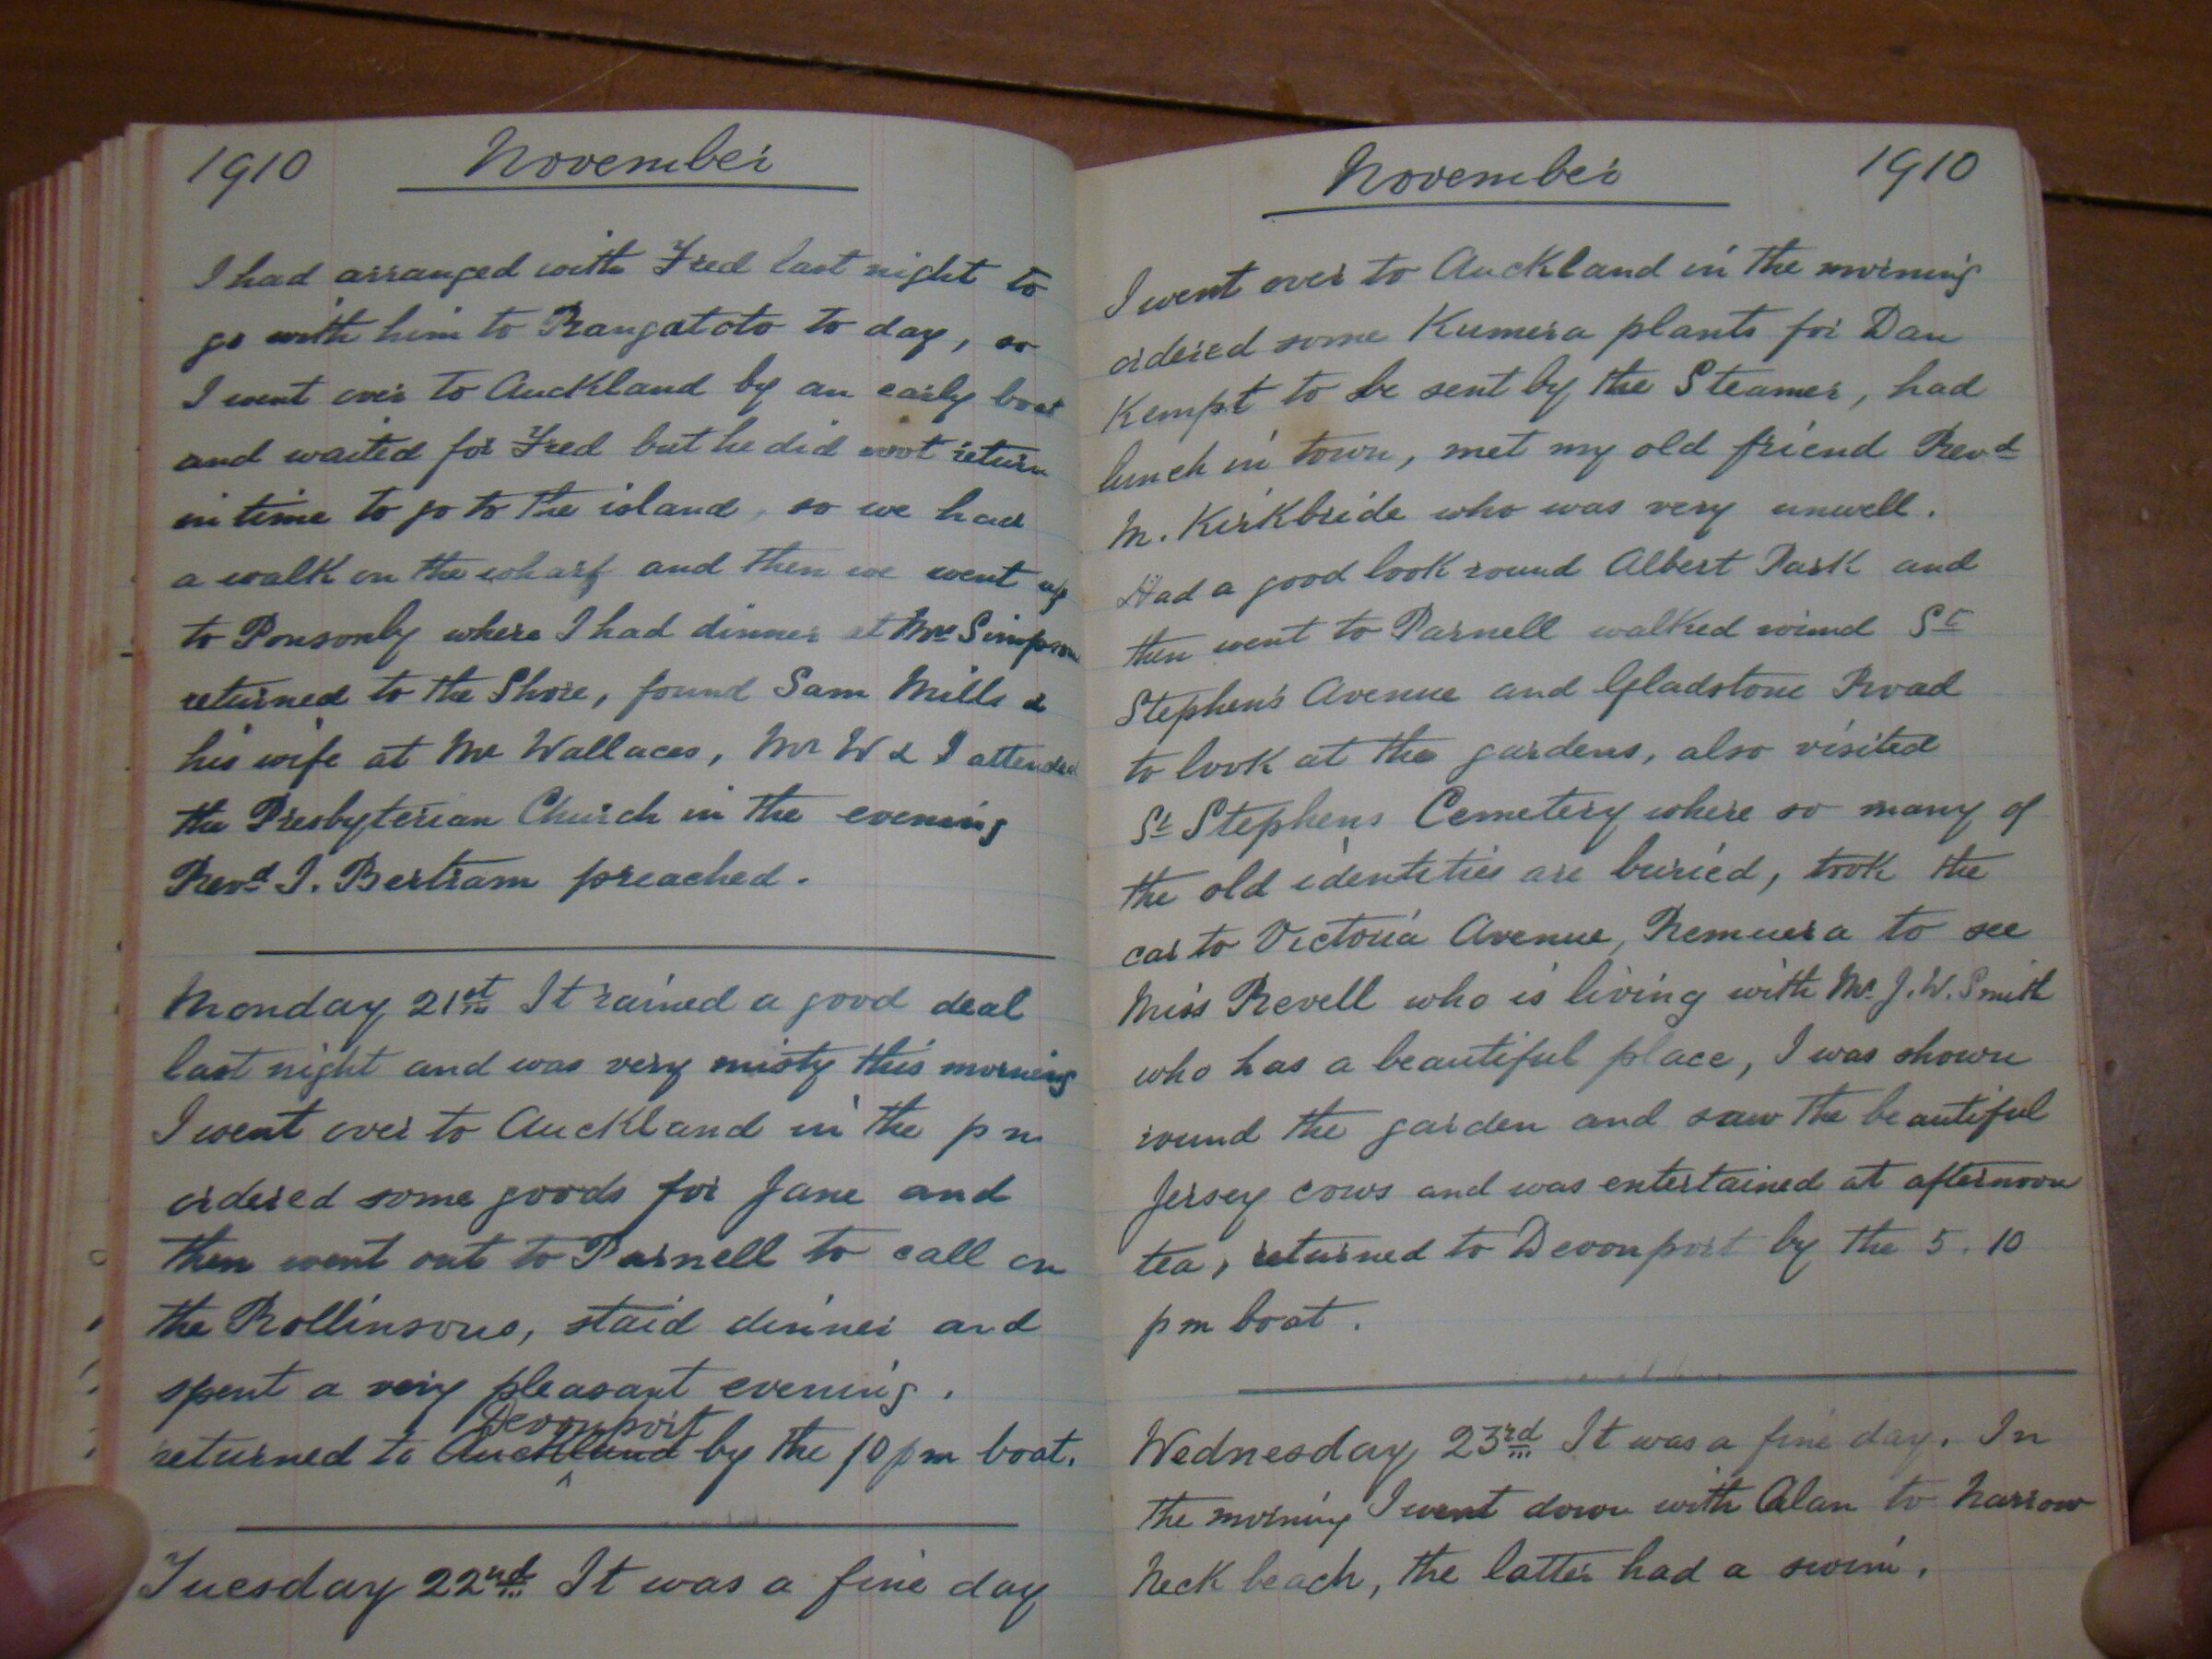 1910 November
I had arranged with Fred last night to
go with him to Rangatoto to day, so
I went over to Auckland by an early boat
and waited for Fred but he did not return
in time to go to the island, so we had
a walk on the wharf and then we went up
to Ponsonby where I had dinner at Mrs Simpson
returned to the Shore, found Sam Mills &
his wife at Mr Wallaces, Mr W & I attended
the Presbyterian Church in the evening
Revd I. Bertram preached.
Monday 21st It rained a good deal
last night and was very misty this morning
I went over to Auckland in the pm
ordered some goods for Jane and
then went out to Parnell to call on
the Rollinsons, staid dinner and
spent a very pleasant evening.
Devonport
returned to Auckland by the 10 pm boat.
Tuesday 22nd It was a fine day
November 1910
I went over to Auckland in the morning
ordered some Kumera plants for Dan
Kempt to be sent by the Steamer, had
lunch in town, met my old friend Revd
M. Kirkbride who was very unwell.
Had a good look round Albert Park and
then went to Parnell walked round St
Stephen's Avenue and Gladstone Road
to look at the gardens, also visited
St Stephens Cemetery where so many of
the old identities are buried, took the
car to Victoria Avenue, Remuera to see
Miss Revell who is living with Mr J. W. Smith
who has a beautiful place, I was shown
round the garden and saw the beautiful
Jersey cows and was entertained at afternoon
tea, returned to Devonport by the 5.10
pm boat.
Wednesday 23rd It was a fine day. In
the morning I went down with Alan to Narrow
Neck beach, the latter had a swim.